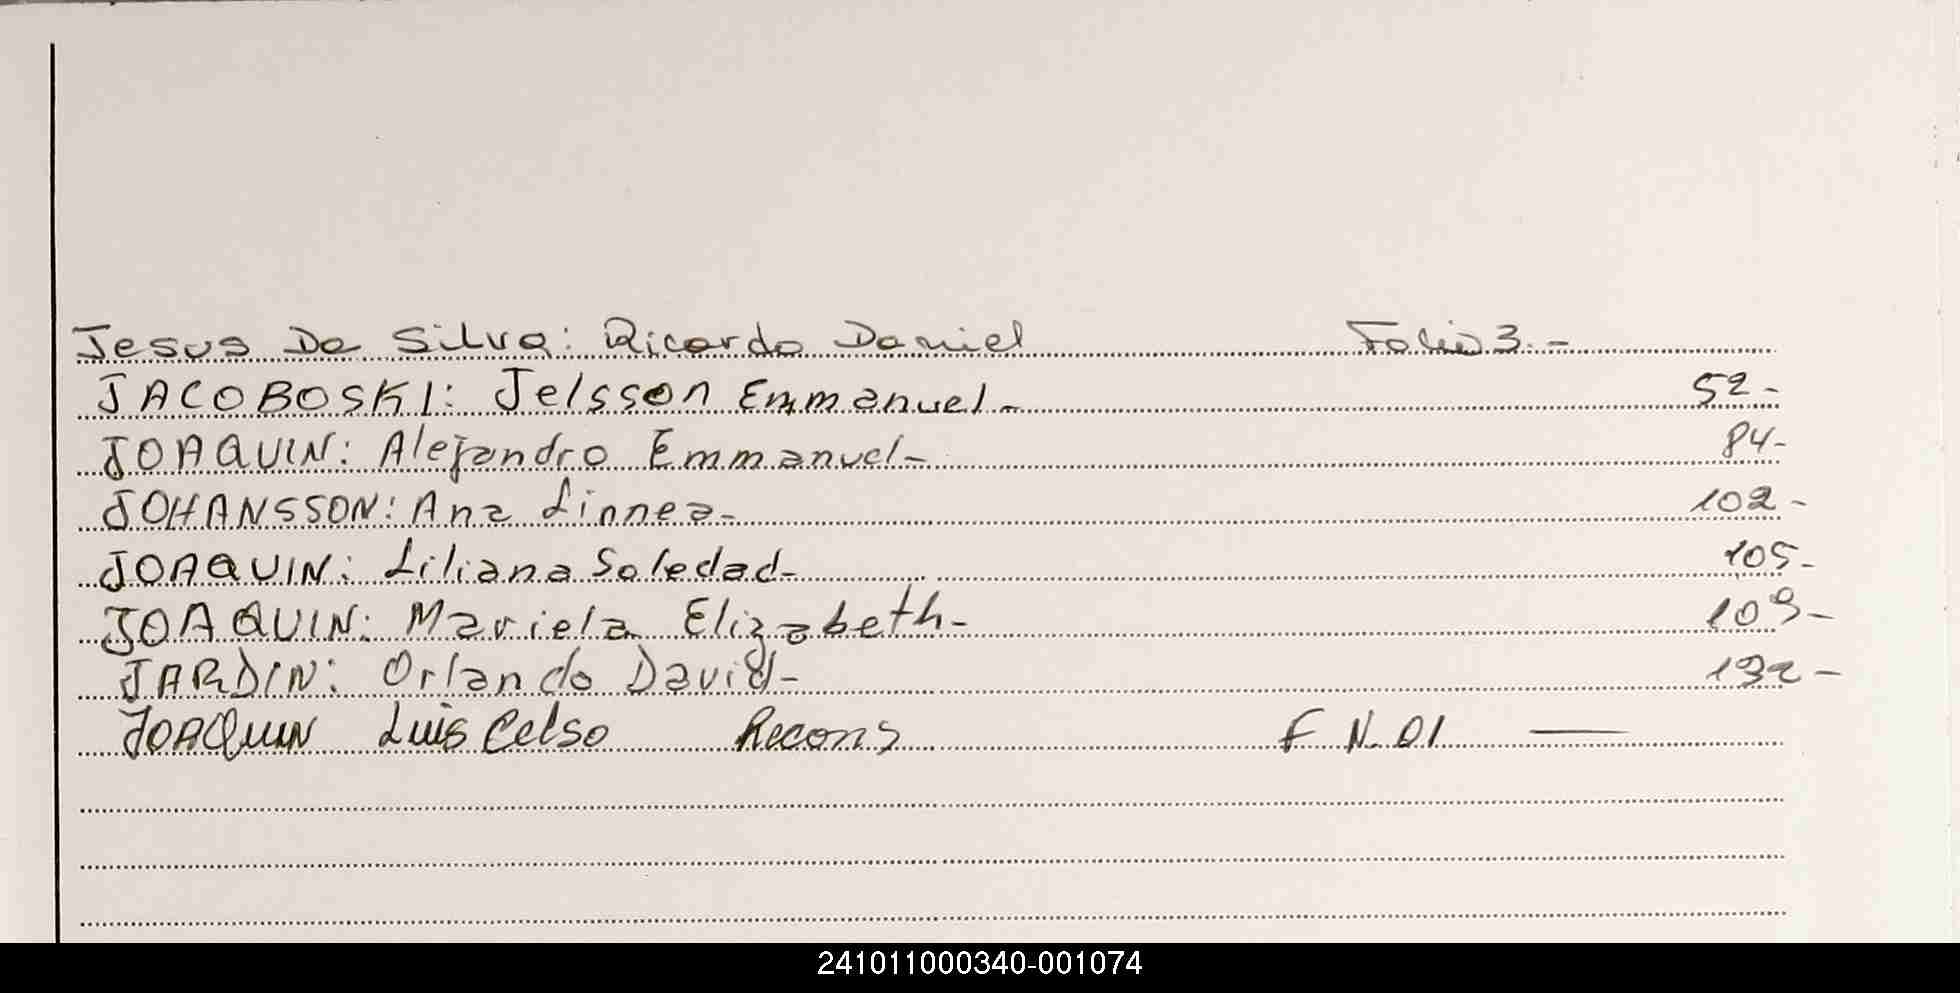 Jesus Da Silva: Ricardo Daniel Folio 3.-
JACOBOSKI: Jelsson Emmanuel- 52-
JOAQUIN: Alejandro Emmanuel- 84-
JOHANSSON: Ana Linnea- 102-
JOAQUIN: Liliana Soledad- 105-
JOAQUIN: Mariela Elizabeth- 109-
JARDIN: Orlando David- 192-
JOAQUIN Luis Celso Recons F N 01 —
241011000340-001074